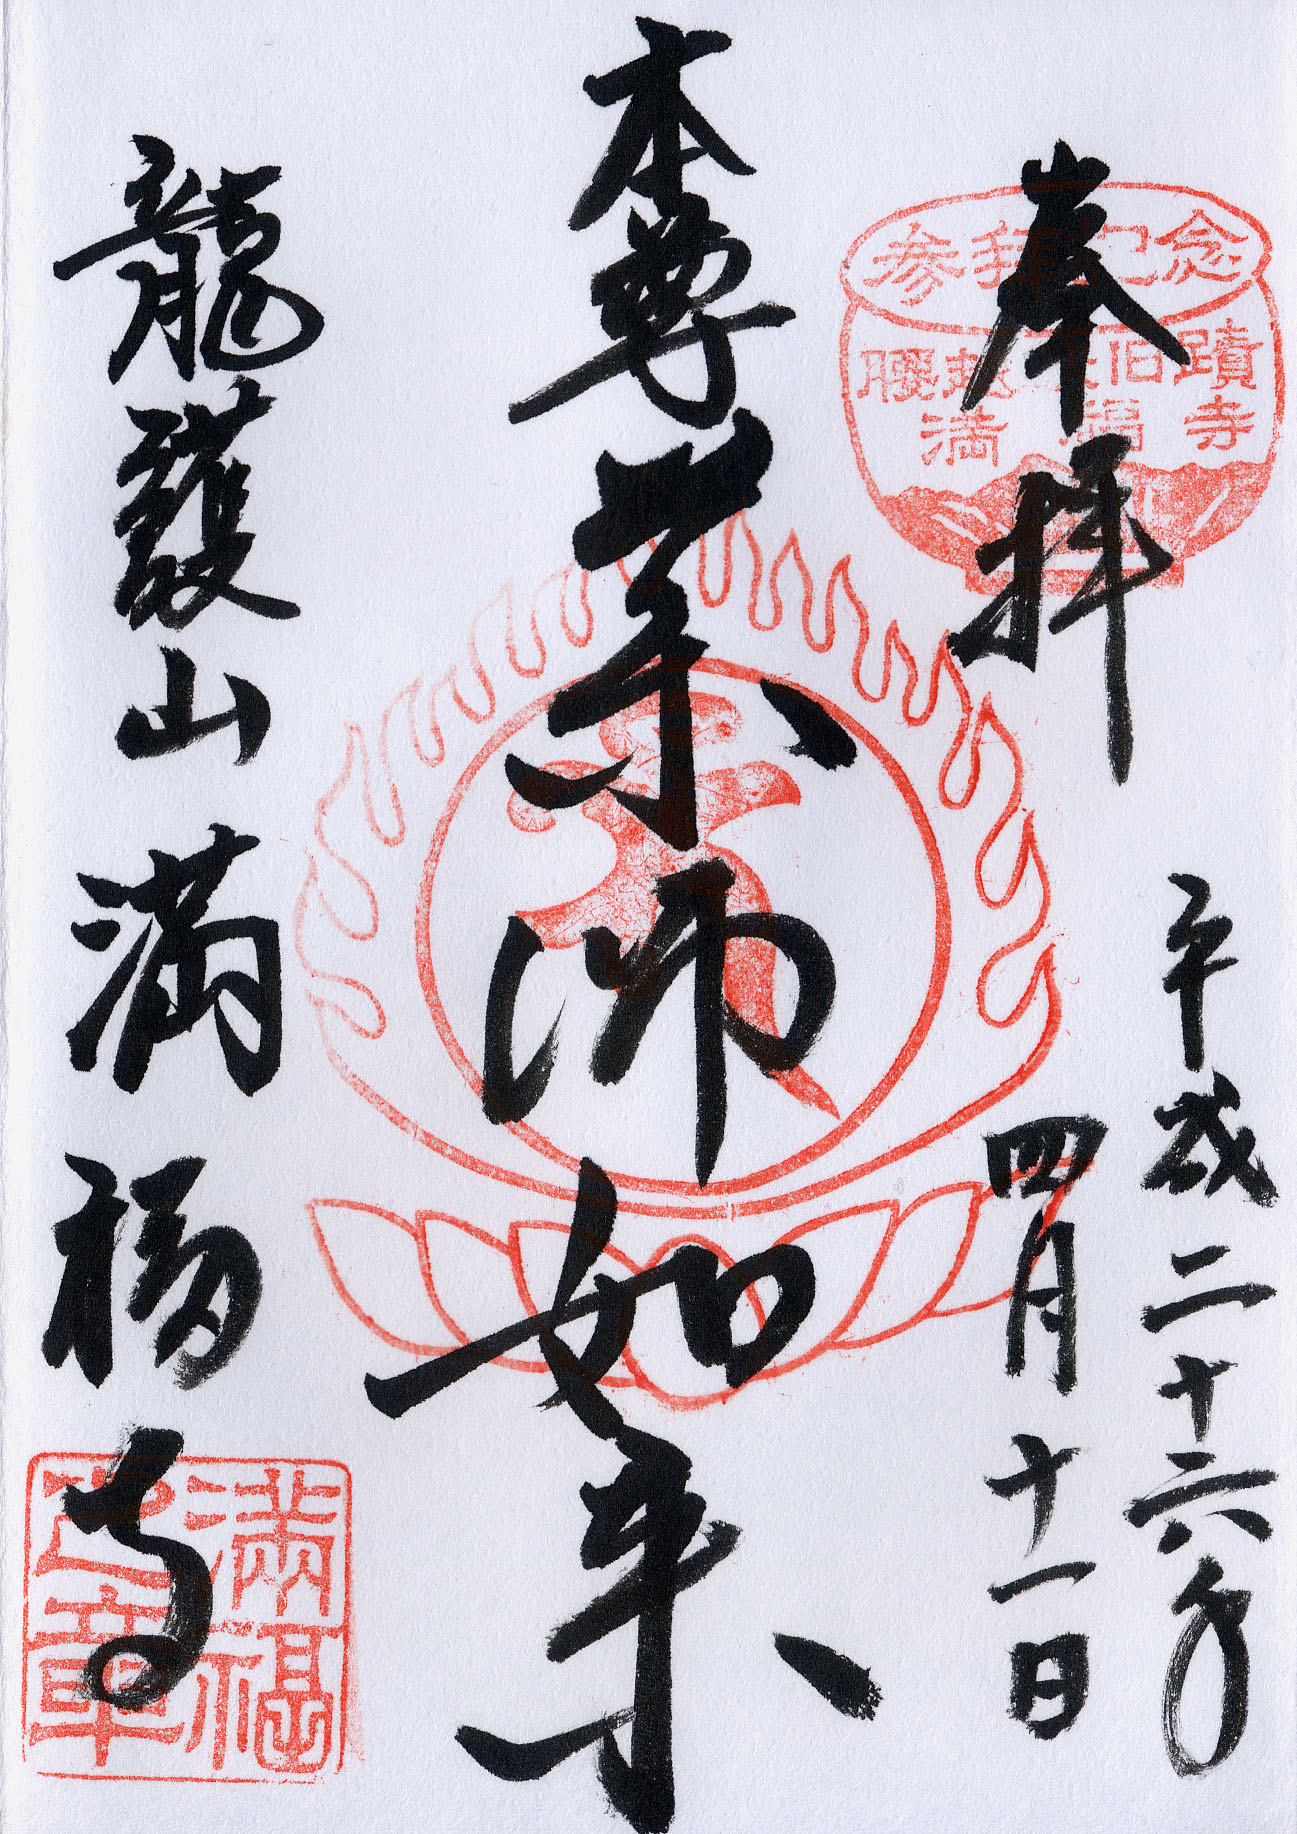 奉拝
平成二十六年
四月十一日
本尊薬師如来
龍護山満福寺
参拝記念
腰越 旧蹟
満福寺
満福
之章